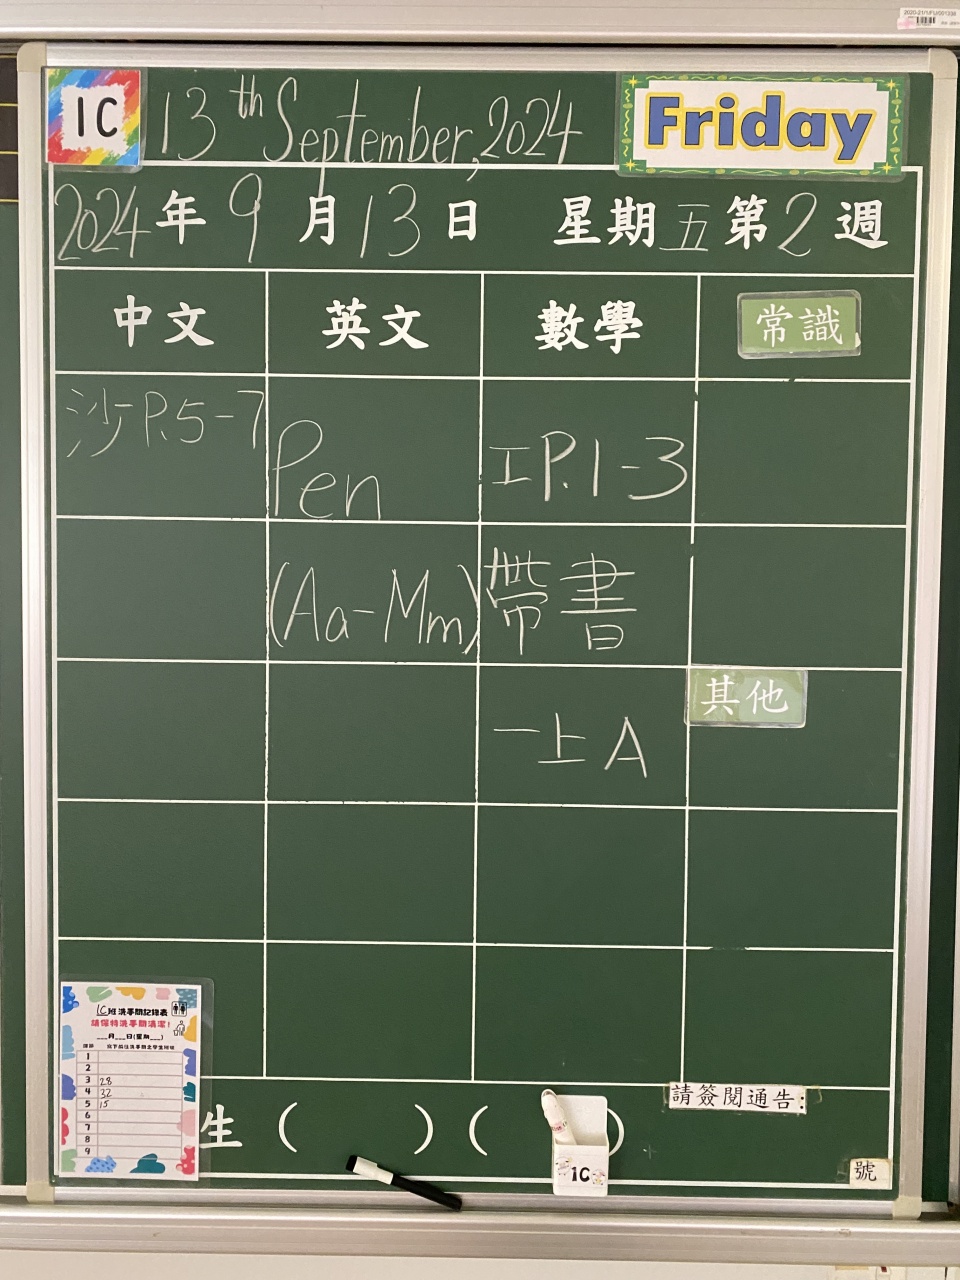 1C
13th September, 2024
Friday
2024年9月13日 星期五第2週
中文
英文
數學
常識
沙 P.5-7
Pen
工P.1-3
(Aa-Mm)
帶書
一上A
其他
1C班洗手間記錄表
請保持洗手間清潔！
___月___日(星期___)
1
2
3 28
4 32
5 15
6
7
8
9
生 ( ) ( )
1C
請簽閱通告:
號